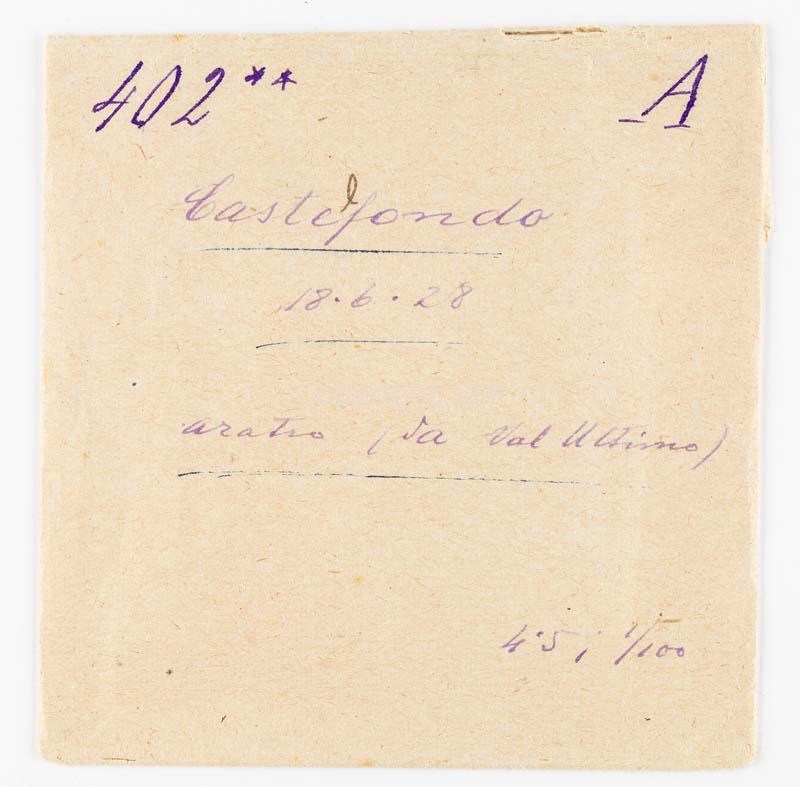 402** A
Castelfondo
18.6.28
aratro (da Val Ultimo)
4.5 ; 1/100